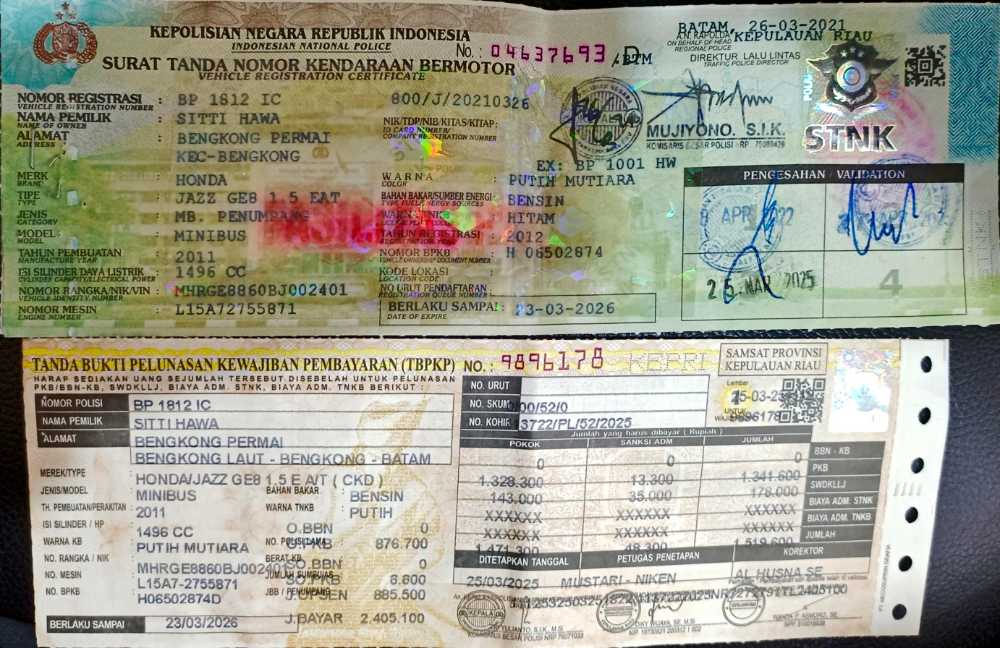 KEPOLISIAN NEGARA REPUBLIK INDONESIA
INDONESIAN NATIONAL POLICE
No.: 04637693 /BTM
SURAT TANDA NOMOR KENDARAAN BERMOTOR
VEHICLE REGISTRATION CERTIFICATE
BATAM, 26-03-2021
AN KAPOLDA KEPULAUAN RIAU
ON BEHALF OF HEAD
REGIONAL POLICE
DIREKTUR LALU LINTAS
TRAFFIC POLICE DIRECTOR
MUJIYONO. S.I.K.
KOMISARIS BESAR POLISI - RP
STNK
NOMOR REGISTRASI : BP 1812 IC 800/J/20210326
VEHICLE REGISTRATION NUMBER
NAMA PEMILIK : SITTI HAWA
NAME OF OWNER
NIK/TDP/NIB/KITAS/KITAP:
ID CARD NUMBER/
COMPANY REGISTRATION NUMBER
ALAMAT : BENGKONG PERMAI
ADDRESS
KEC-BENGKONG
EX: BP 1001 HW
MERK : HONDA
BRAND
WARNA : PUTIH MUTIARA
COLOR
TIPE : JAZZ GE8 1.5 EAT
TYPE
BAHAN BAKAR/SUMBER ENERGI : BENSIN
JENIS : MB. PENUMPANG
CATEGORY
WARNA TNKB : HITAM
MODEL : MINIBUS
MODEL
TAHUN REGISTRASI : 2012
TAHUN PEMBUATAN : 2011
MANUFACTURE YEAR
NOMOR BPKB : H 06502874
ISI SILINDER/DAYA LISTRIK : 1496 CC
KODE LOKASI :
LOCATION CODE
NOMOR RANGKA/NIK/VIN : MHRGE8860BJ002401
VEHICLE IDENTITY NUMBER
NO URUT PENDAFTARAN :
REGISTRATION QUEUE NUMBER
NOMOR MESIN : L15A72755871
ENGINE NUMBER
BERLAKU SAMPAI : 23-03-2026
DATE OF EXPIRE
PENGESAHAN / VALIDATION
APR 2022
25 MAR 2025
4
TANDA BUKTI PELUNASAN KEWAJIBAN PEMBAYARAN (TBPKP) NO.: 9896178 KEPRI
HARAP SEDIAKAN UANG SEJUMLAH TERSEBUT DISEBELAH UNTUK PELUNASAN
PKB/BBN-KB, SWDKLLJ, BIAYA ADM. STNK, BIAYA ADM. TNKB BERIKUT :
SAMSAT PROVINSI
KEPULAUAN RIAU
Lembar
1
UNTUK
NOMOR POLISI BP 1812 IC
NAMA PEMILIK SITTI HAWA
ALAMAT BENGKONG PERMAI
BENGKONG LAUT - BENGKONG - BATAM
NO. URUT
NO. SKUM /00/52/0
NO. KOHIR 3722/PL/52/2025
Jumlah yang harus dibayar ( Rupiah )
POKOK SANKSI ADM JUMLAH
0 0 0 BBN - KB
1.328.300 13.300 1.341.600 PKB
143.000 35.000 178.000 SWDKLLJ
XXXXXX XXXXXX XXXXXX BIAYA ADM. STNK
XXXXXX XXXXXX XXXXXX BIAYA ADM. TNKB
1.471.300 48.300 1.519.600 JUMLAH
MEREK/TYPE HONDA/JAZZ GE8 1.5 E A/T ( CKD )
JENIS/MODEL MINIBUS BAHAN BAKAR : BENSIN
TH. PEMBUATAN/PERAKITAN 2011 WARNA TNKB : PUTIH
ISI SILINDER / HP 1496 CC O.BBN 0
WARNA KB PUTIH MUTIARA NO. POLISI LAMA O.PKB 876.700
NO. RANGKA / NIK MHRGE8860BJ002401 BERAT KB SO.BBN 0
NO. MESIN L15A7-2755871 SO.PKB 8.800
NO. BPKB H06502874D JBB / PENUMPANG J.OPSEN 885.500
BERLAKU SAMPAI 23/03/2026 J.BAYAR 2.405.100
DITETAPKAN TANGGAL PETUGAS PENETAPAN KOREKTOR
25/03/2025 MUSTARI - NIKEN AL HUSNA SE